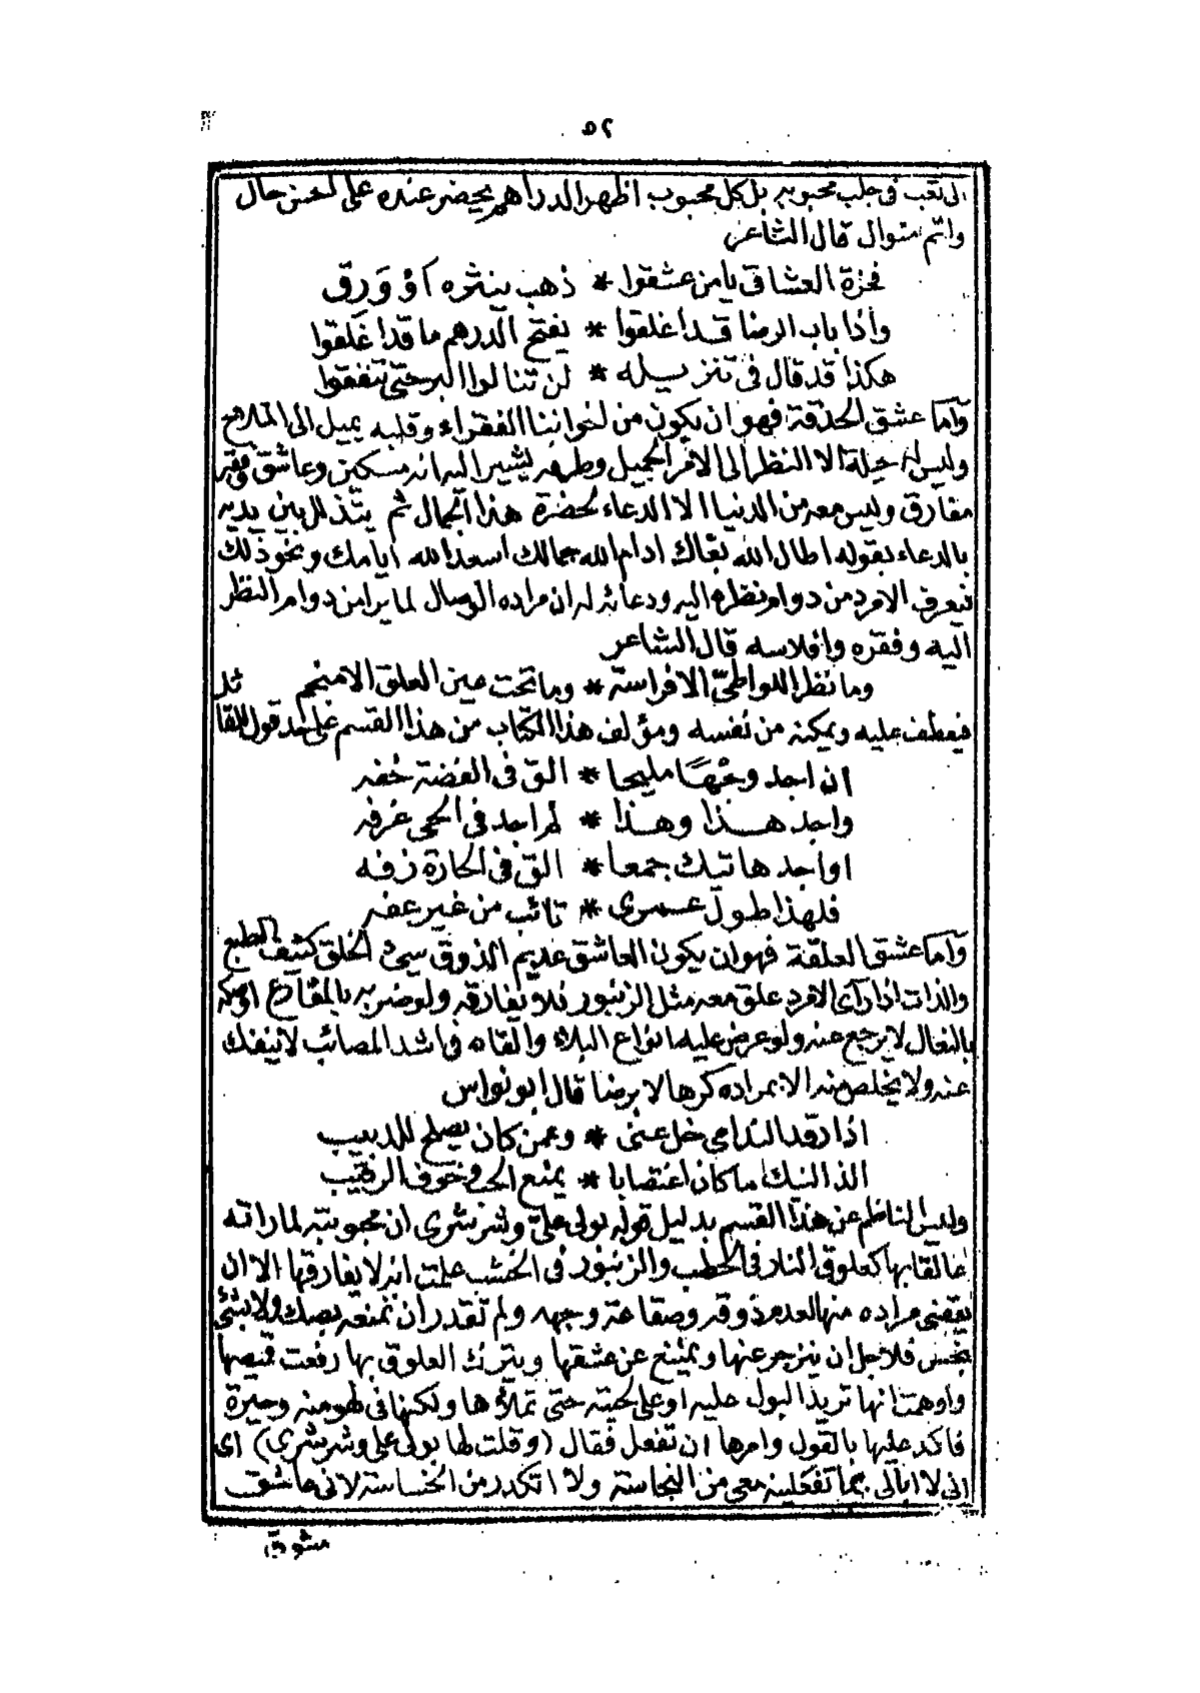 ٥٢
الى تعب فى جلب محبوبه بل كل محبوب اظهر الدراهم يحضر عنده على احسن حال
واتم منوال قال الشاعر
فحزة العشاق يا من عشقوا * ذهب ينثره أو وَرِق
واذا باب الرضا قد اغلقوا * يفتح الدرهم ما قد اغلقوا
هكذا قد قال فى تنزيله * لن تنالوا البر حتى تنفقوا
وأما عشق الحذقة فهو ان يكون من اخواننا الفقراء وقلبه يميل الى الملاح
وليس له حيلة الا النظر الى الامر الجميل وطرفه يشير اليه انه مسكين وعاشق فقير
مفارق وليس معه من الدنيا الا الدعاء لحضرة هذا الجمال ثم يتذلل بين يديه
بالدعاء بقوله اطال الله بقاك ادام الله جمالك اسعد الله ايامك ونحو ذلك
فيعرف الامرد من دوام نظره اليه ودعائه له ان مراده الوصال لما يرا من دوام النظر
اليه وفقره وافلاسه قال الشاعر
وما نظر اللواطىّ الا فراسة * وما تحت عين العلق الا منجم
فيعطف عليه ويمكنه من نفسه ومؤلف هذا الكتاب من هذا القسم على حد قول القائل
ان اجد وجهًا مليحا * الق فى الفضة خفه
واجد هذا وهذا * لم اجد فى الحى غرفه
او اجد هاتيك جمعا * الق فى الحارة زفه
فلهذا طول عمرى * تائب من غير عفه
وأما عشق العلقة فهو ان يكون العاشق عديم الذوق سيئ الخلق كثيف الطبع
والذات اذا رأى الامرد علق معه مثل الزنبور فلا يفارقه ولو ضربه بالمقارع او صكه
بالنعال لا يرجع عنه ولو عرض عليه انواع البلاء والقاه فى اشد المصائب لا ينفك
عنه ولا يخلص منه الا بمراده كرها لا برضا قال ابو نواس
اذا رقد الندامى خل عنى * وعمن كان يصلح للدبيب
الذ النيك ما كان اغتصابا * بمنع الحب وخوف الرقيب
وليس الناظم عن هذا القسم بدليل قوله بولى علىّ وشرشرى ان محبوبته لما راته
عالقا بها كعلوق النار فى الحطب والزنبور فى الخشب علمت انه لا يفارقها الا ان
يقضى مراده منها لعدم ذوقه وصقاعة وجهه ولم تقدر ان تمنعه بصك ولا بشئ
نجس فلاجل ان ينزجر عنها ويمتنع عن عشقها ويترك العلوق بها رفعت قميصها
واوهمت انها تريد البول عليه او على لحيته حتى تملأها ولكنها فى لهو منه وحيرة
فاكد عليها بالقول وامرها ان تفعل فقال (وقلت لها بولى على وشرشرى) اى
انى لا ابالى بما تفعلينه معى من النجاسة ولا اتكدر من الخساسة لانى عاشق
مشوق